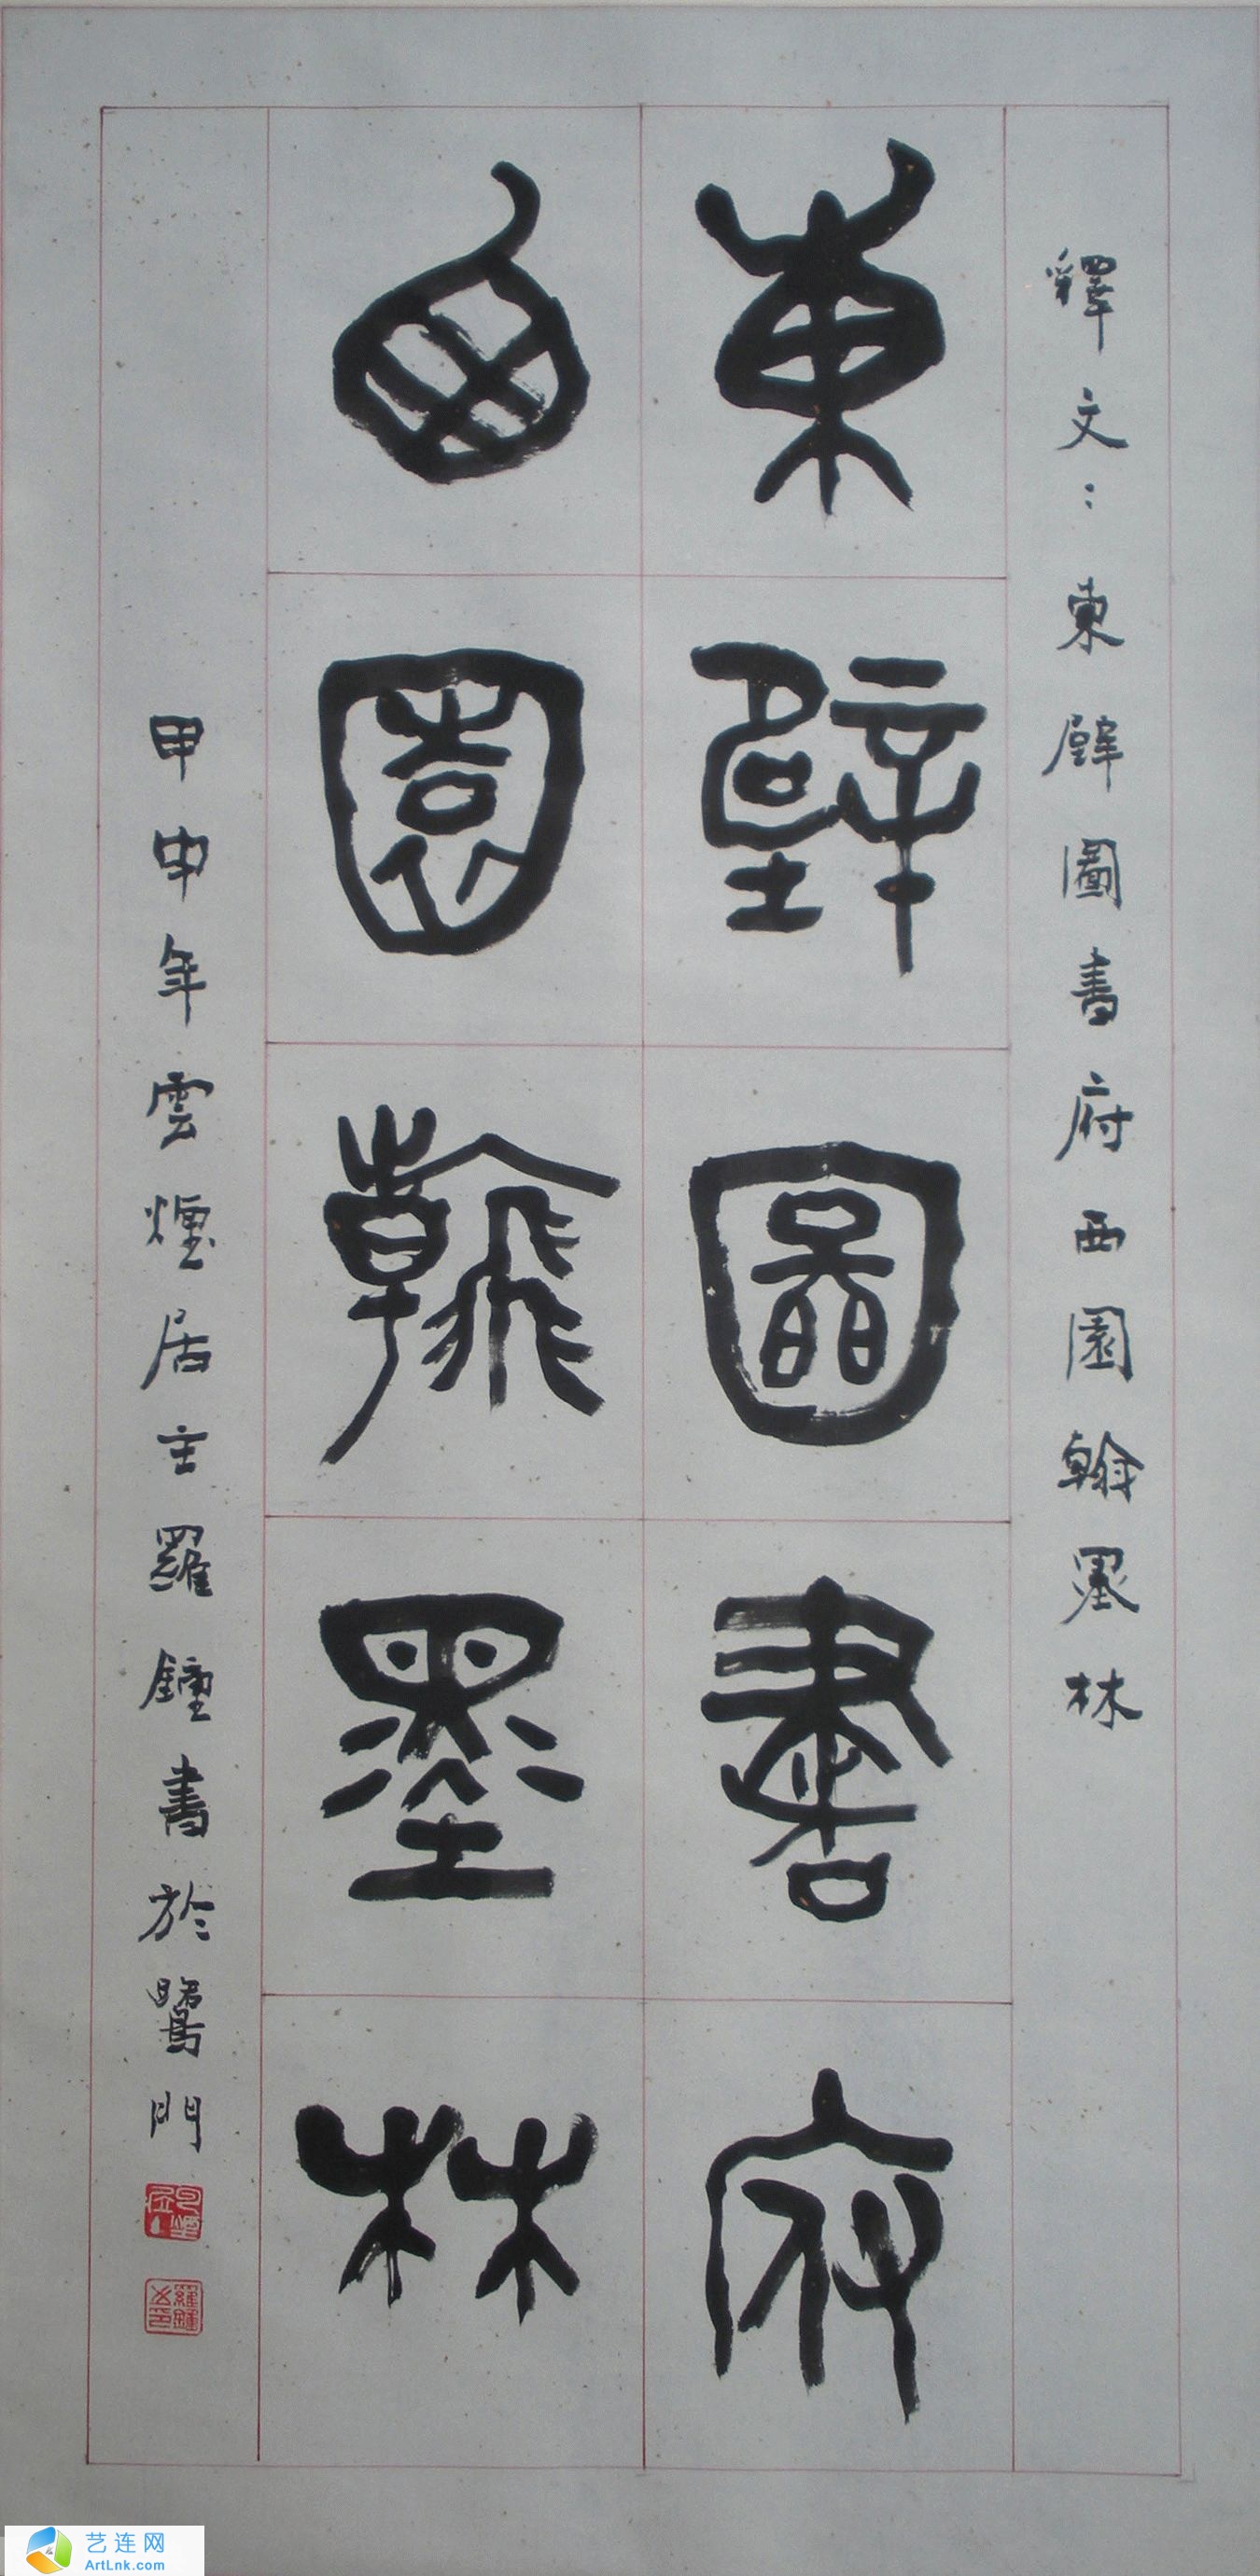 釋文：東壁圖書府西園翰墨林
東壁圖書府
西園翰墨林
甲申年雲煙居主羅鍾書於鷺門
羅鍾之印
艺连网
ArtLnk.com